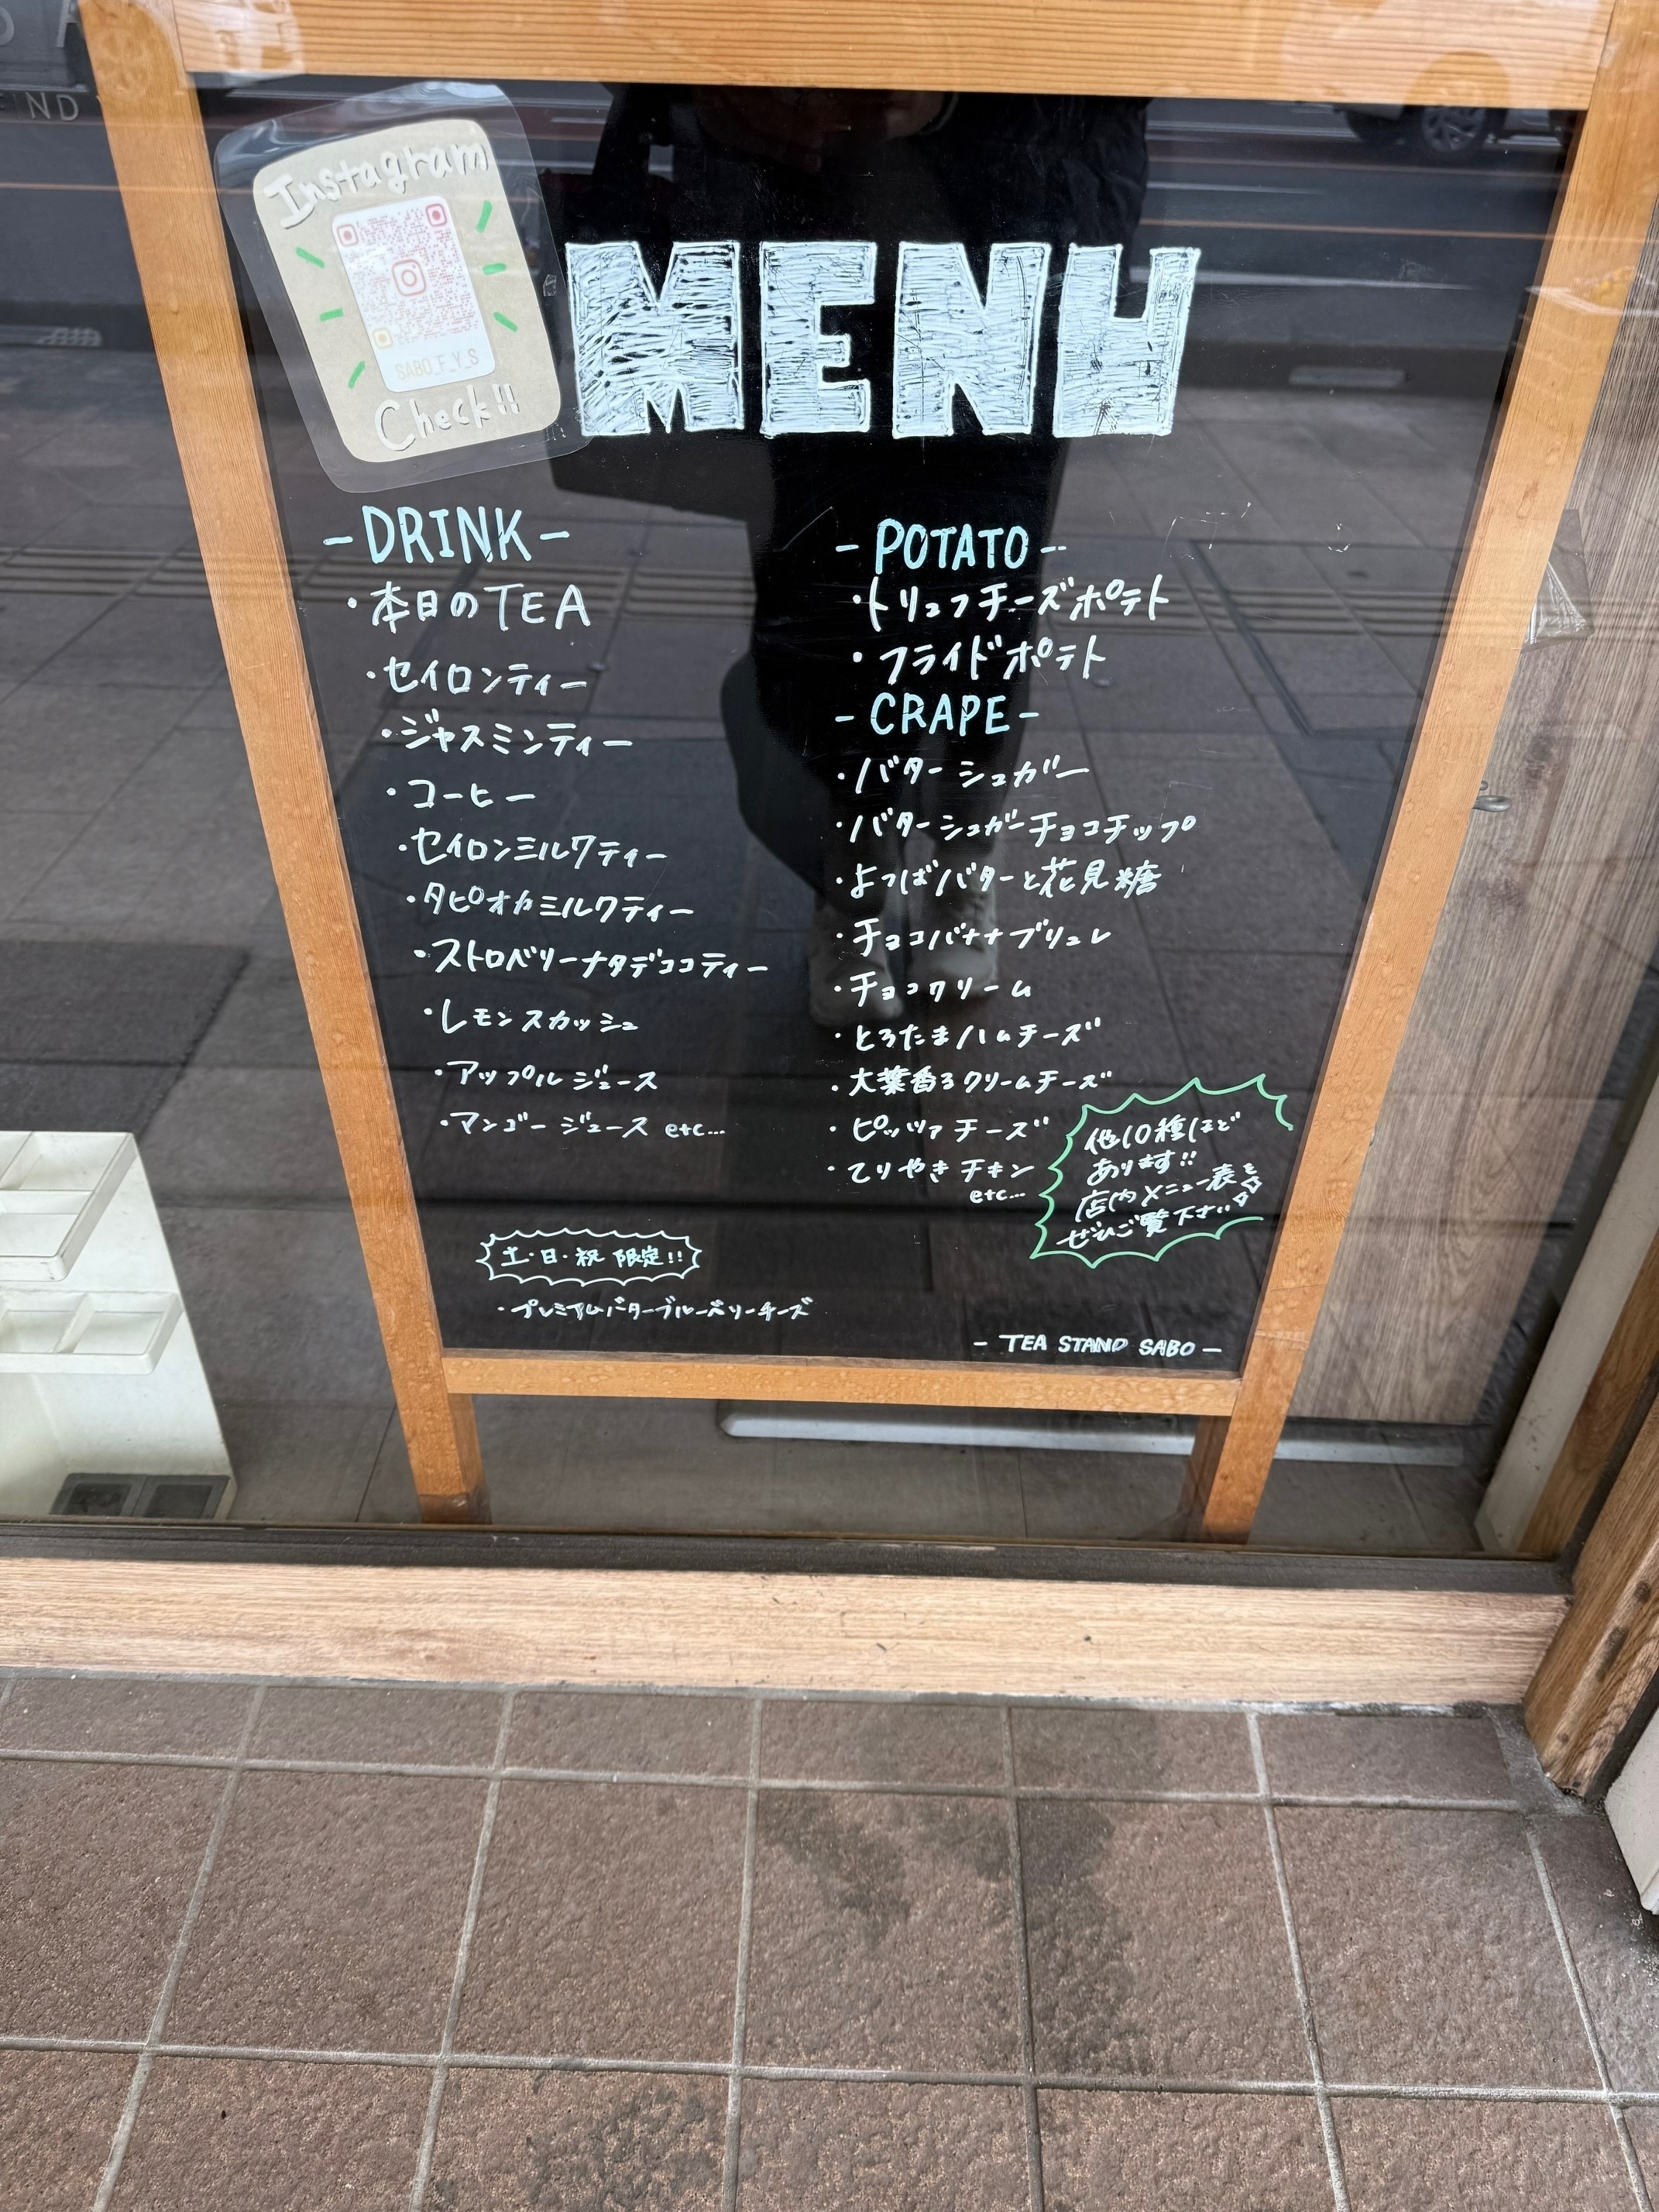 Instagram
SABO_F_Y_S
Check!!
MENU
-DRINK-
・本日のTEA
・セイロンティー
・ジャスミンティー
・コーヒー
・セイロンミルクティー
・タピオカミルクティー
・ストロベリーナタデココティー
・レモンスカッシュ
・アップルジュース
・マンゴージュース etc...
土・日・祝 限定!!
・プレミアムバターブルーベリーチーズ
-POTATO-
・トリュフチーズポテト
・フライドポテト
-CRAPE-
・バターシュガー
・バターシュガーチョコチップ
・よつばバターと花見糖
・チョコバナナブリュレ
・チョコクリーム
・とろたまハムチーズ
・大葉香るクリームチーズ
・ピッツァチーズ
・てりやきチキン
etc...
他10種ほど
あります!!
店内メニュー表を
ぜひご覧下さい
- TEA STAND SABO -